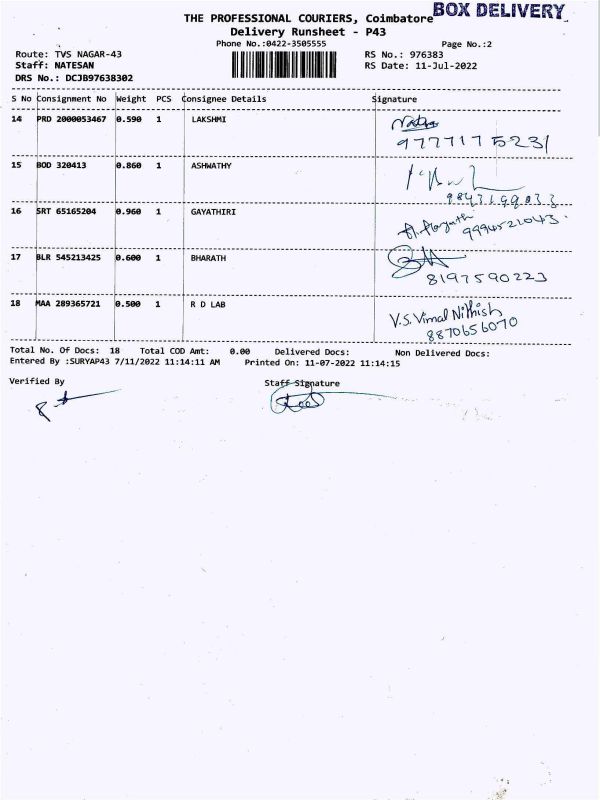 BOX DELIVERY
THE PROFESSIONAL COURIERS, Coimbatore
Delivery Runsheet - P43
Phone No.:0422-3505555 Page No.:2
Route: TVS NAGAR-43 RS No.: 976383
Staff: NATESAN RS Date: 11-Jul-2022
DRS No.: DCJB97638302
S No Consignment No Weight PCS Consignee Details Signature
14 PRD 2000053467 0.590 1 LAKSHMI
9777175231
15 BOD 320413 0.860 1 ASHWATHY
9843199033
16 SRT 65165204 0.960 1 GAYATHIRI
9994521043
17 BLR 545213425 0.600 1 BHARATH
8197590223
18 MAA 289365721 0.500 1 R D LAB
V.S. Vimal Nithish
8870656070
Total No. Of Docs: 18 Total COD Amt: 0.00 Delivered Docs: Non Delivered Docs:
Entered By :SURYAP43 7/11/2022 11:14:11 AM Printed On: 11-07-2022 11:14:15
Verified By Staff Signature